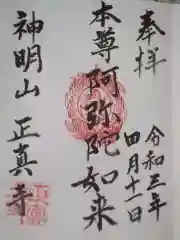 奉拝
令和三年
四月十一日
本尊 阿弥陀如来
神明山 正真寺